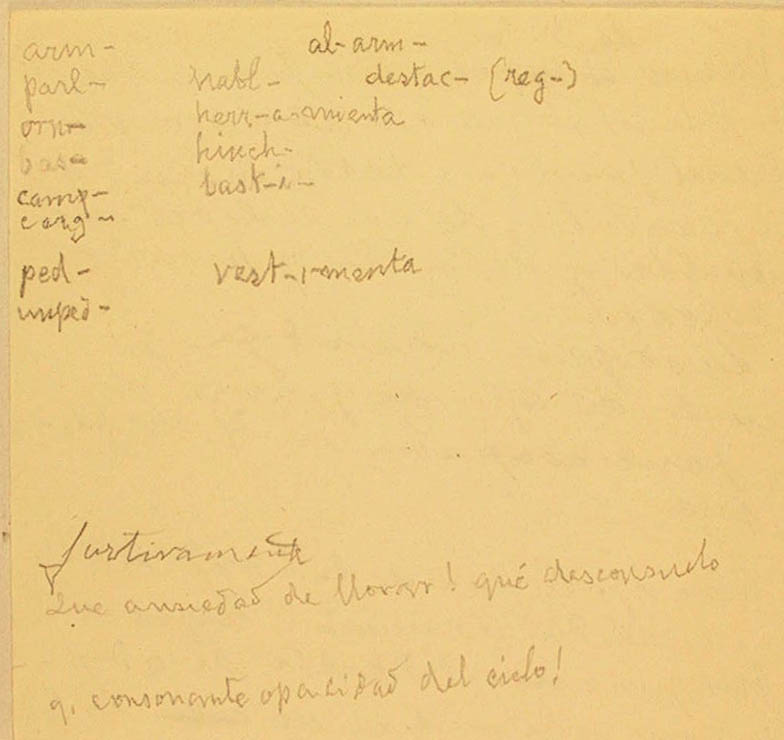 arm- al-arm-
parl- habl- destac- (reg-)
orn- herr-a-mienta
bas- hinch-
camp- bast-i-
carg-
ped- vest-i-menta
imped-
furtivamente
Que ansiedad de llorar! qué desconsuelo
q. consonante opacidad del cielo!